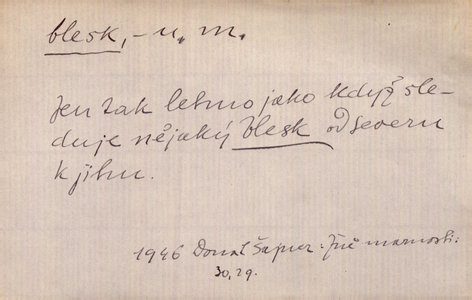 blesk, -u, m.
Jen tak letmo jako když sle-
duje nějaký blesk od severu
k jihu.
1946 Donat Šajner: Jiné marnosti:
30,29.